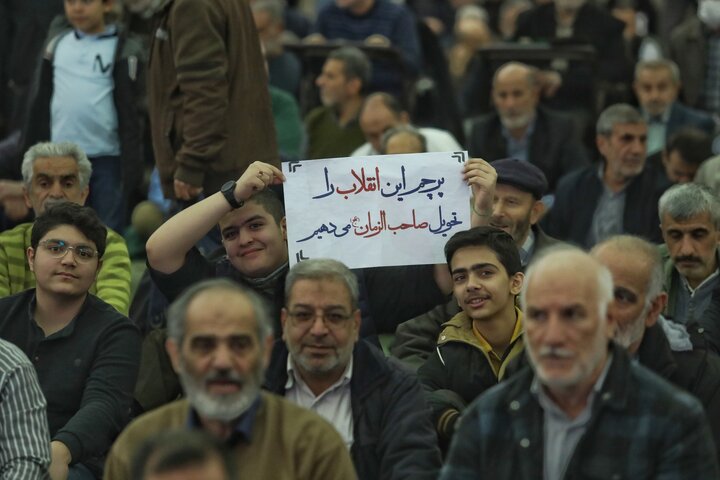 پرچم این انقلاب را
تحویل صاحب الزمان (عج) می دهیم